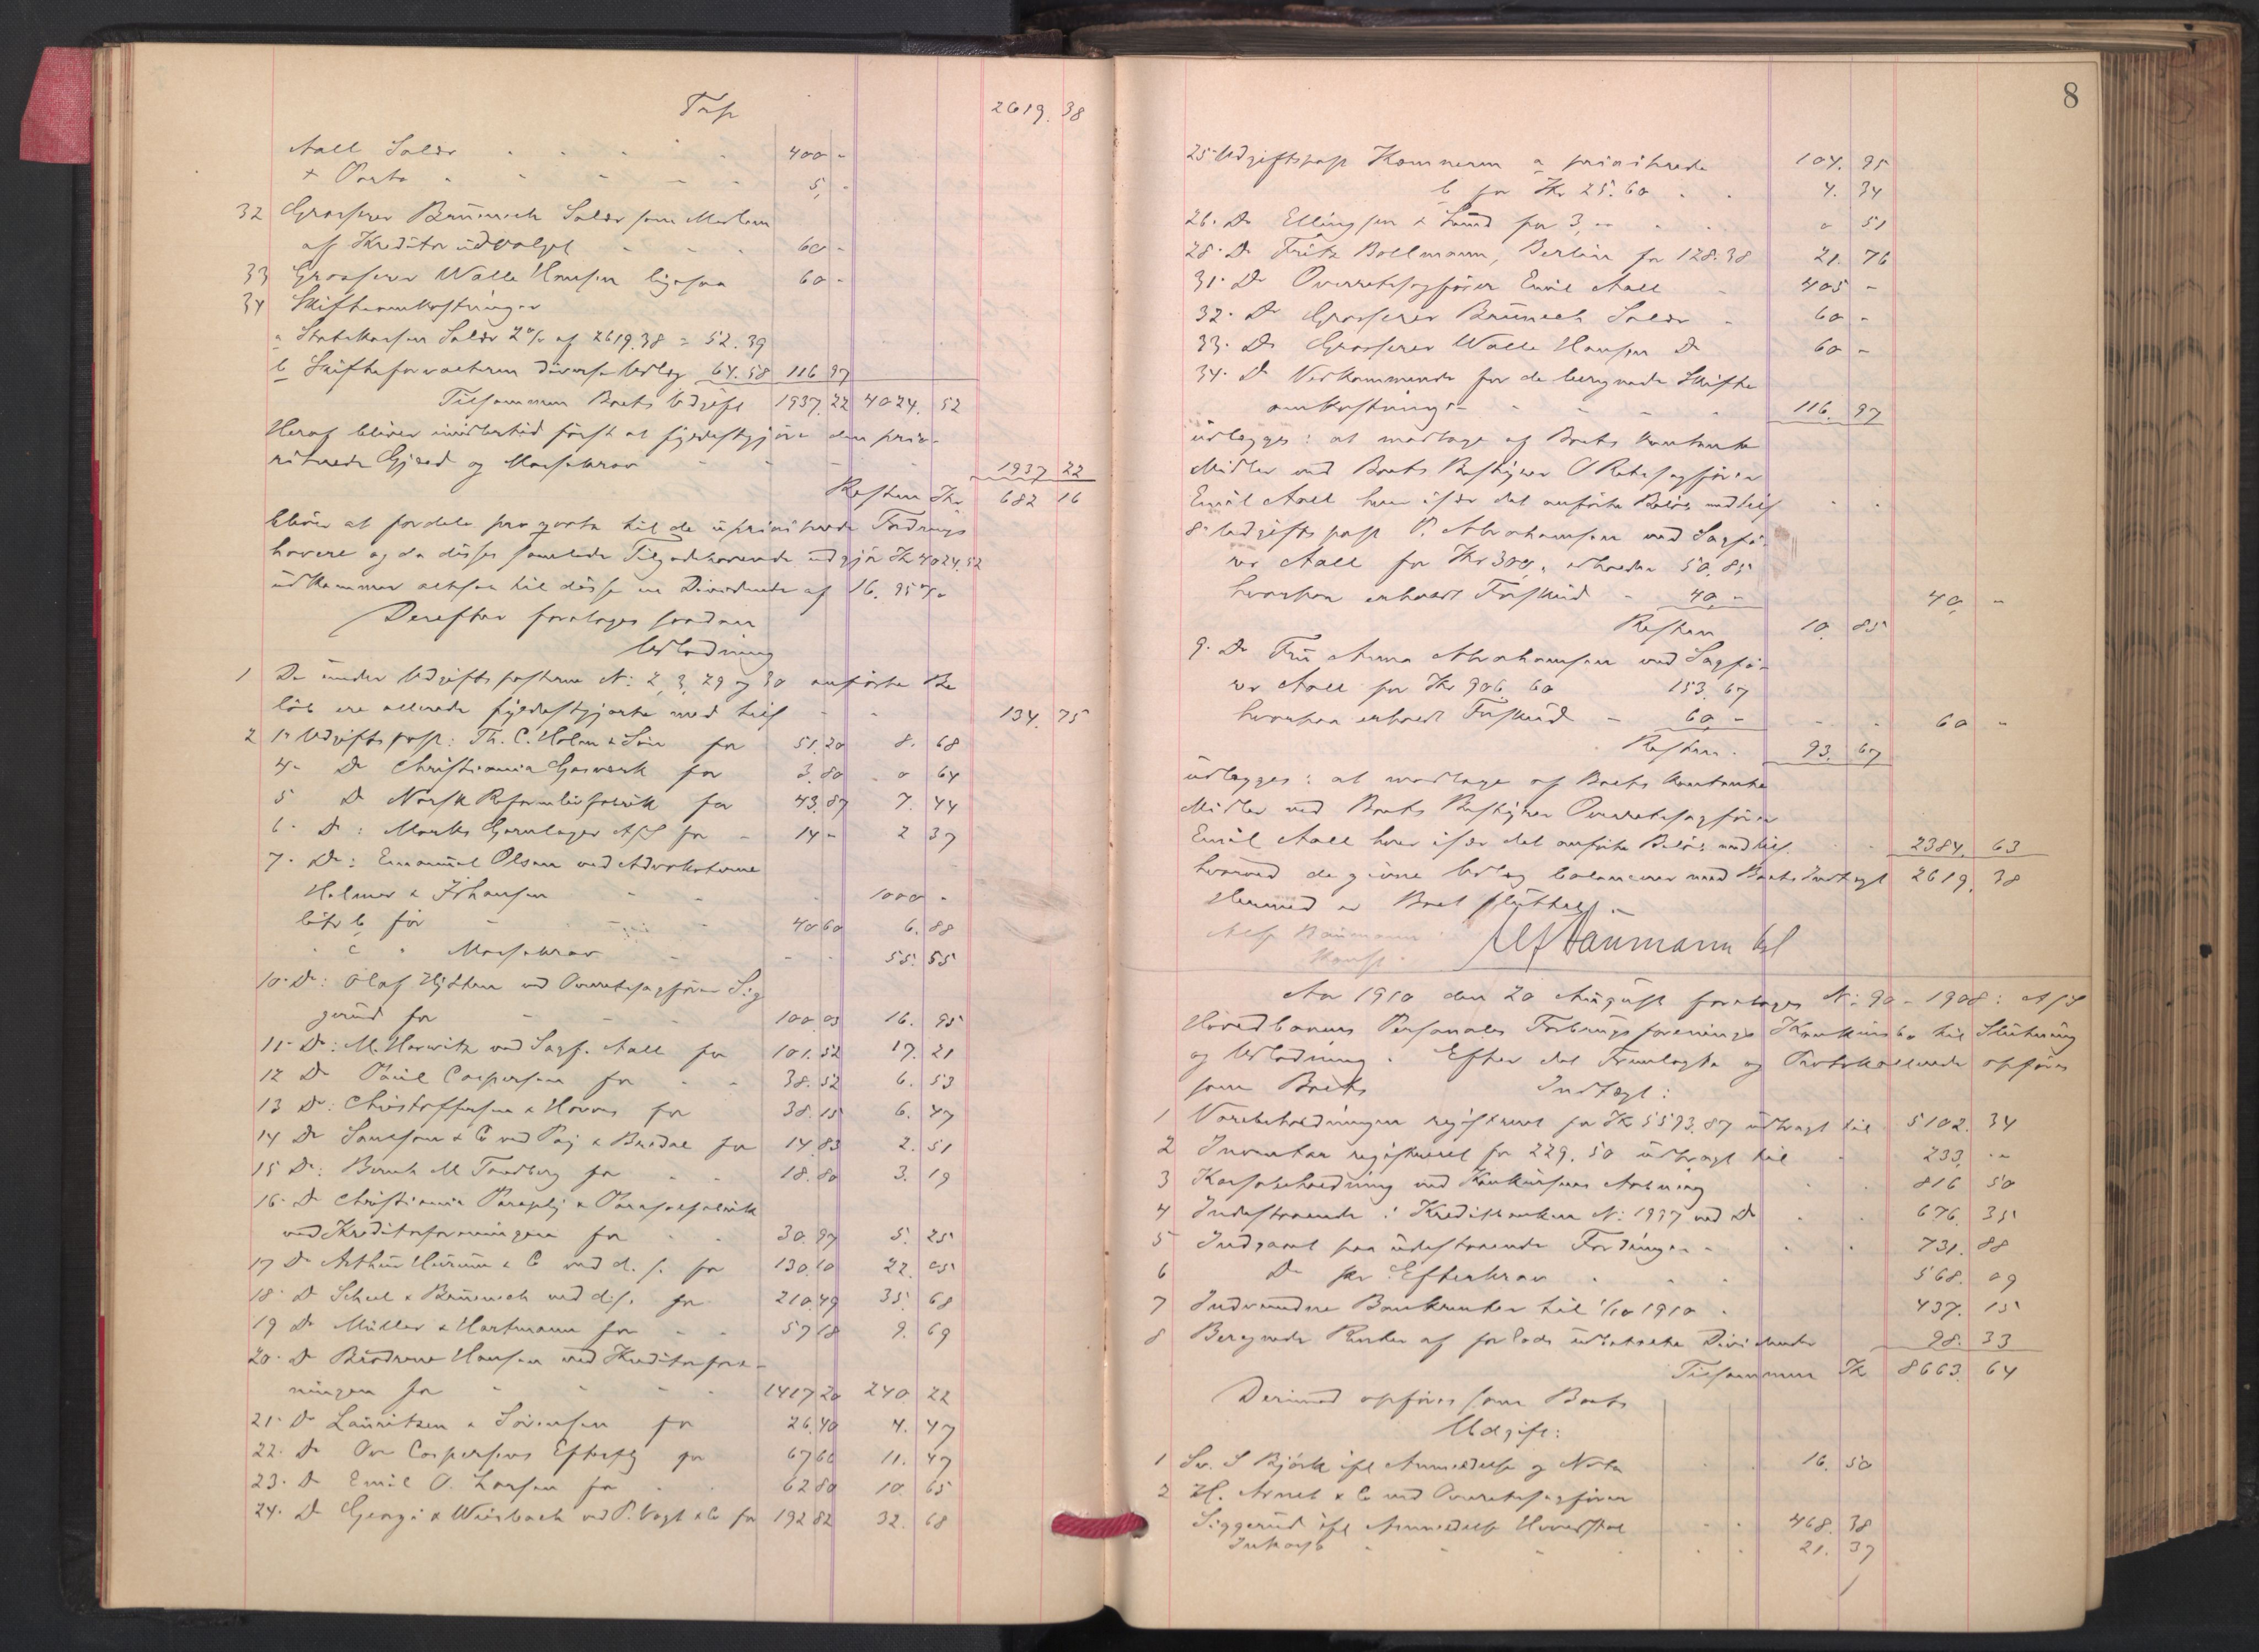 Trsp 2619. 38
Aall Salær 400 -
+ Porto 5, -
32 Grosserer Brünnich Salær som Medlem
af Kreditorudvalget 60 -
33 Grosserer Walle Hansen ligesaa 60 -
34 Skifteomkostninger
a Statskassen Salær 2% af 2619.38 = 52.39
b Skifteforvalteren diverse Udlæg 64.58 116 97
Tilsammen Boets Udgift 1937.22 4024. 52
Heraf bliver imidlertid først at fyldestgjøre den prio-
riterede Gjæld og Massekrav 1937 22
Resten Kr 682 16
bliver at fordele pro qvota til de uprioriterede Fordrings
havere og da disses samlede Tilgodehavende udgjør Kr 4024.52
udkommer altsaa til disse en Dividende af 16.95%
Derefter foretoges saadan
Udlodning
1 De under Udgiftsposterne N: 2, 3, 29 og 30 anførte Be
løb ere allerede fyldestgjorte med tils 134. 75
2 1- Udgiftspost: Th. C. Holm & Søn for 51.20 8. 68
4- Do Christiania Gasverk for 3.80 - 0 64
5 Do Norsk Reformlivfabrik for 43.87 7. 44
6- Do: Marks Garnlager A/S for - 14 - 2. 37
7. Do: Emanuel Olsen ved Advokaterne
Holmer & Johansen 1000 -
litr b for 40 60 6. 88
- c " Massekrav 55. 55
10- Do: Olaf Hytten ved Overretssagfører Sig
gerud for 100.03 16. 95
11- Do: M. Horwitz ved Sagf. Aall for 101.52 17. 21
12 Do Paul Caspersen for 38.52 6. 53
13 Do: Christoffersen & Hovors for 38.15 6. 47
14 Do Sontum & Co ved Paj & Bredal for 14.83 2. 51
15 Do: Bernh M Tandberg for 18.80 3. 19
16- Do Christiania Paraply & Parasolfabrik
ved Kreditorforeningen for 30.97 5. 25
17 Do Arthur Hurum & Co ved d. s. for 130.10 22. 05
18- Do Scheel & Brünnich ved d. s. for 210.49 35. 68
19 Do Müller & Hartmann for 57 18 9. 69
20- Do Brødrene Hansen ved Kreditorfore-
ningen for 1417 20 240. 22
21- Do Lauritzen & Sørensen for 26.40 4. 47
22- Do Ove Caspersens Efterflg for 67 66 11. 47
23- Do Emil O. Larsen for 62 80 10. 65
24- Do Georgi & Weisbach ved P. Vogt & Co for 192 82 32. 68
8
25- Udgiftspost Kemneren a prioriterede 104. 95
b for Kr 25.60 4. 34
26- Do Ellingsen & Lund for 3, - - 0 51
28- Do Fritz Bollmann, Berlin for 128.38 21. 76
31- Do Overretssagfører Emil Aall 405 -
32- Do Grosserer Brünnich Salær - 60 -
33- Do Grosserer Walle Hansen Do 60 -
34- Do Vedkommende for de beregnede Skifte
omkostninger 116. 97
udlægges: at modtage af Boets kontante
Midler ved Boets Bestyrer O Retssagfører
Emil Aall hver især det anførte Beløb med tils
8- Udgiftspost P. Abrahamsen ved Sagfø-
rer Aall for Kr 300, - 50.85
hvorpaa erholdt Forskud - 40, - 40, -
Resten 10. 85
9. Do Fru Anna Abrahamsen ved Sagfø-
rer Aall for Kr 906.60 153. 67
hvorpaa erholdt Forskud - 60, - 60 -
Resten 93. 67
udlægges: at modtage af Boets kontante
Midler ved Boets Bestyrer Overretssagfører
Emil Aall hver især det anførte Beløb med tils. 2384. 63
hvorved de givne Udlæg balancerer med Boets Indtægt 2619. 38
Hermed er Boet sluttet. -
Alf Naumann
Alf Naumann
Aar 1910 den 20 August foretoges N: 90 - 1908: A/S
Hovedbanens Personales Forbrugsforenings Konkursbo til Slutning
og Udlodning. Efter det Fremlagte og Protokollerede opføres
som Boets Indtægt:
1 Varebeholdningen registreret for Kr 5593.87 udbragt til 5102. 34
2 Inventar registreret for 229.50 udbragt til 233, --
3 Kassebeholdning ved Konkursens Aabning 816 50
4 Indestaaende i Kreditbanken N: 1937 ved Do 676. 35
5 Indgaaet paa udestaaende Fordringer - 731. 88
6 Do pr Efterkrav 568. 09
7 Indvundne Bankrenter til 1/10 1910 - 437. 15
8 Beregnede Renter af forlods udbetalte Dividender 98. 33
Tilsammen Kr 8663. 64
Derimod opføres som Boets
Udgift:
1 Sv. S Björk ifl Anmeldelse og Nota 16. 50
2 H. Arnet & Co ved Overretssagfører
Siggerud ifl Anmeldelse Hovedstol 468. 38
Inkasso 21. 37